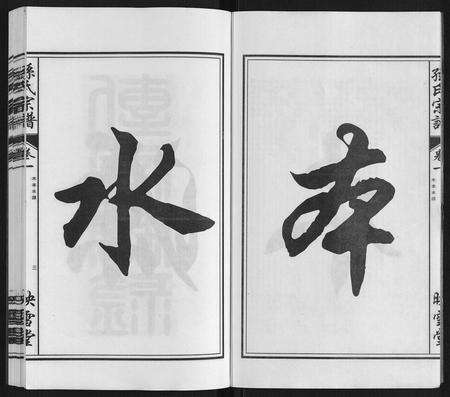 孫氏宗譜
卷一
本
水
孫氏宗譜
卷一
三
映雪堂
映雪堂